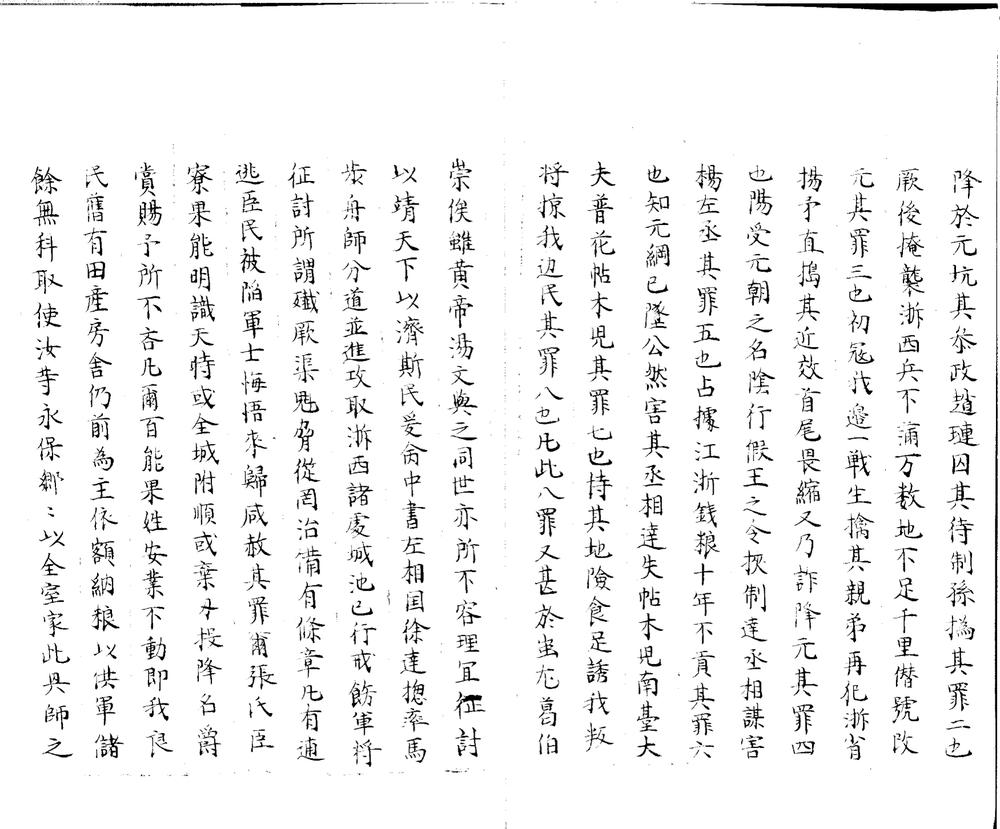 降於元坑其叅政趙璉囚其待制孫撝其罪二也
厥後掩襲浙西兵不滿万数地不足千里僣號改
元其罪三也初寇我邉一戦生擒其親弟再犯浙省
揚矛直搗其近效首尾畏縮又乃詐降元其罪四
也陽受元朝之名陰行假王之令挾制達丞相謀害
楊左丞其罪五也占據江浙錢粮十年不貢其罪六
也知元綱已墜公然害其丞相達失帖木児南臺大
夫普花帖木児其罪七也恃其地險食足誘我叛
将掠我边民其罪八也凡此八罪又甚於蚩尤葛伯
崇侯雖黄帝湯文與之同世亦所不容理宜征討
以靖天下以濟斯民爰命中書左相国徐達揔率馬
步舟師分道並進攻取浙西諸處城池已行戒飭軍将
征討所謂殲厥渠魁脅從罔治備有條章凡有逋
逃臣民被陷軍士悔悟来歸咸赦其罪爾張氏臣
寮果能明識天時或全城附順或棄刃投降名爵
賞賜予所不吝凡爾百能果姓安業不動即我良
民舊有田産房舎仍前為主依額納粮以供軍儲
餘無科取使汝等永保鄉〻以全室家此興師之